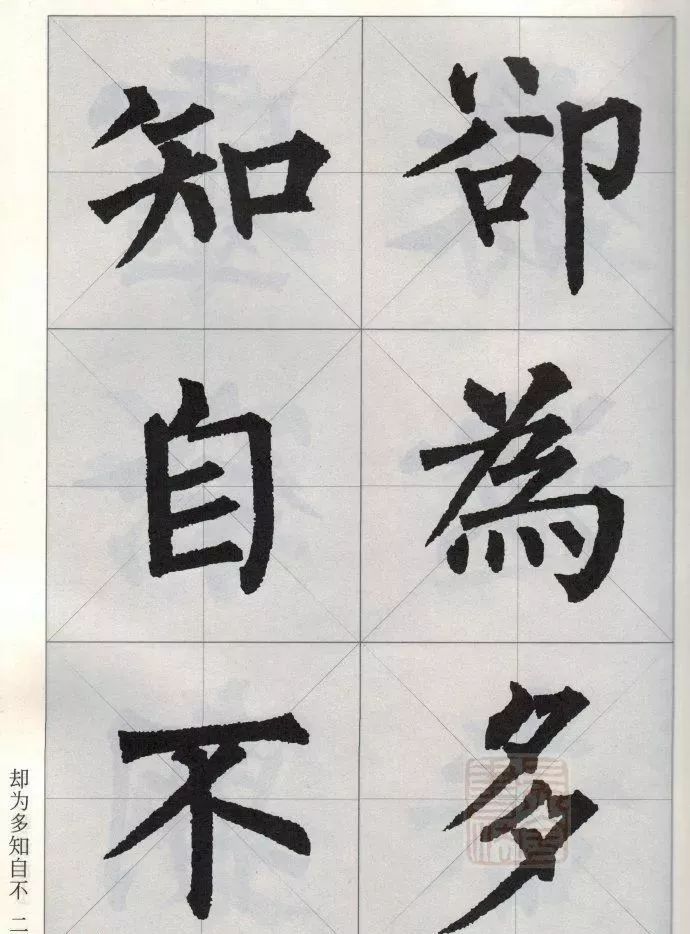 卻為多
知自不
却为多知自不 二